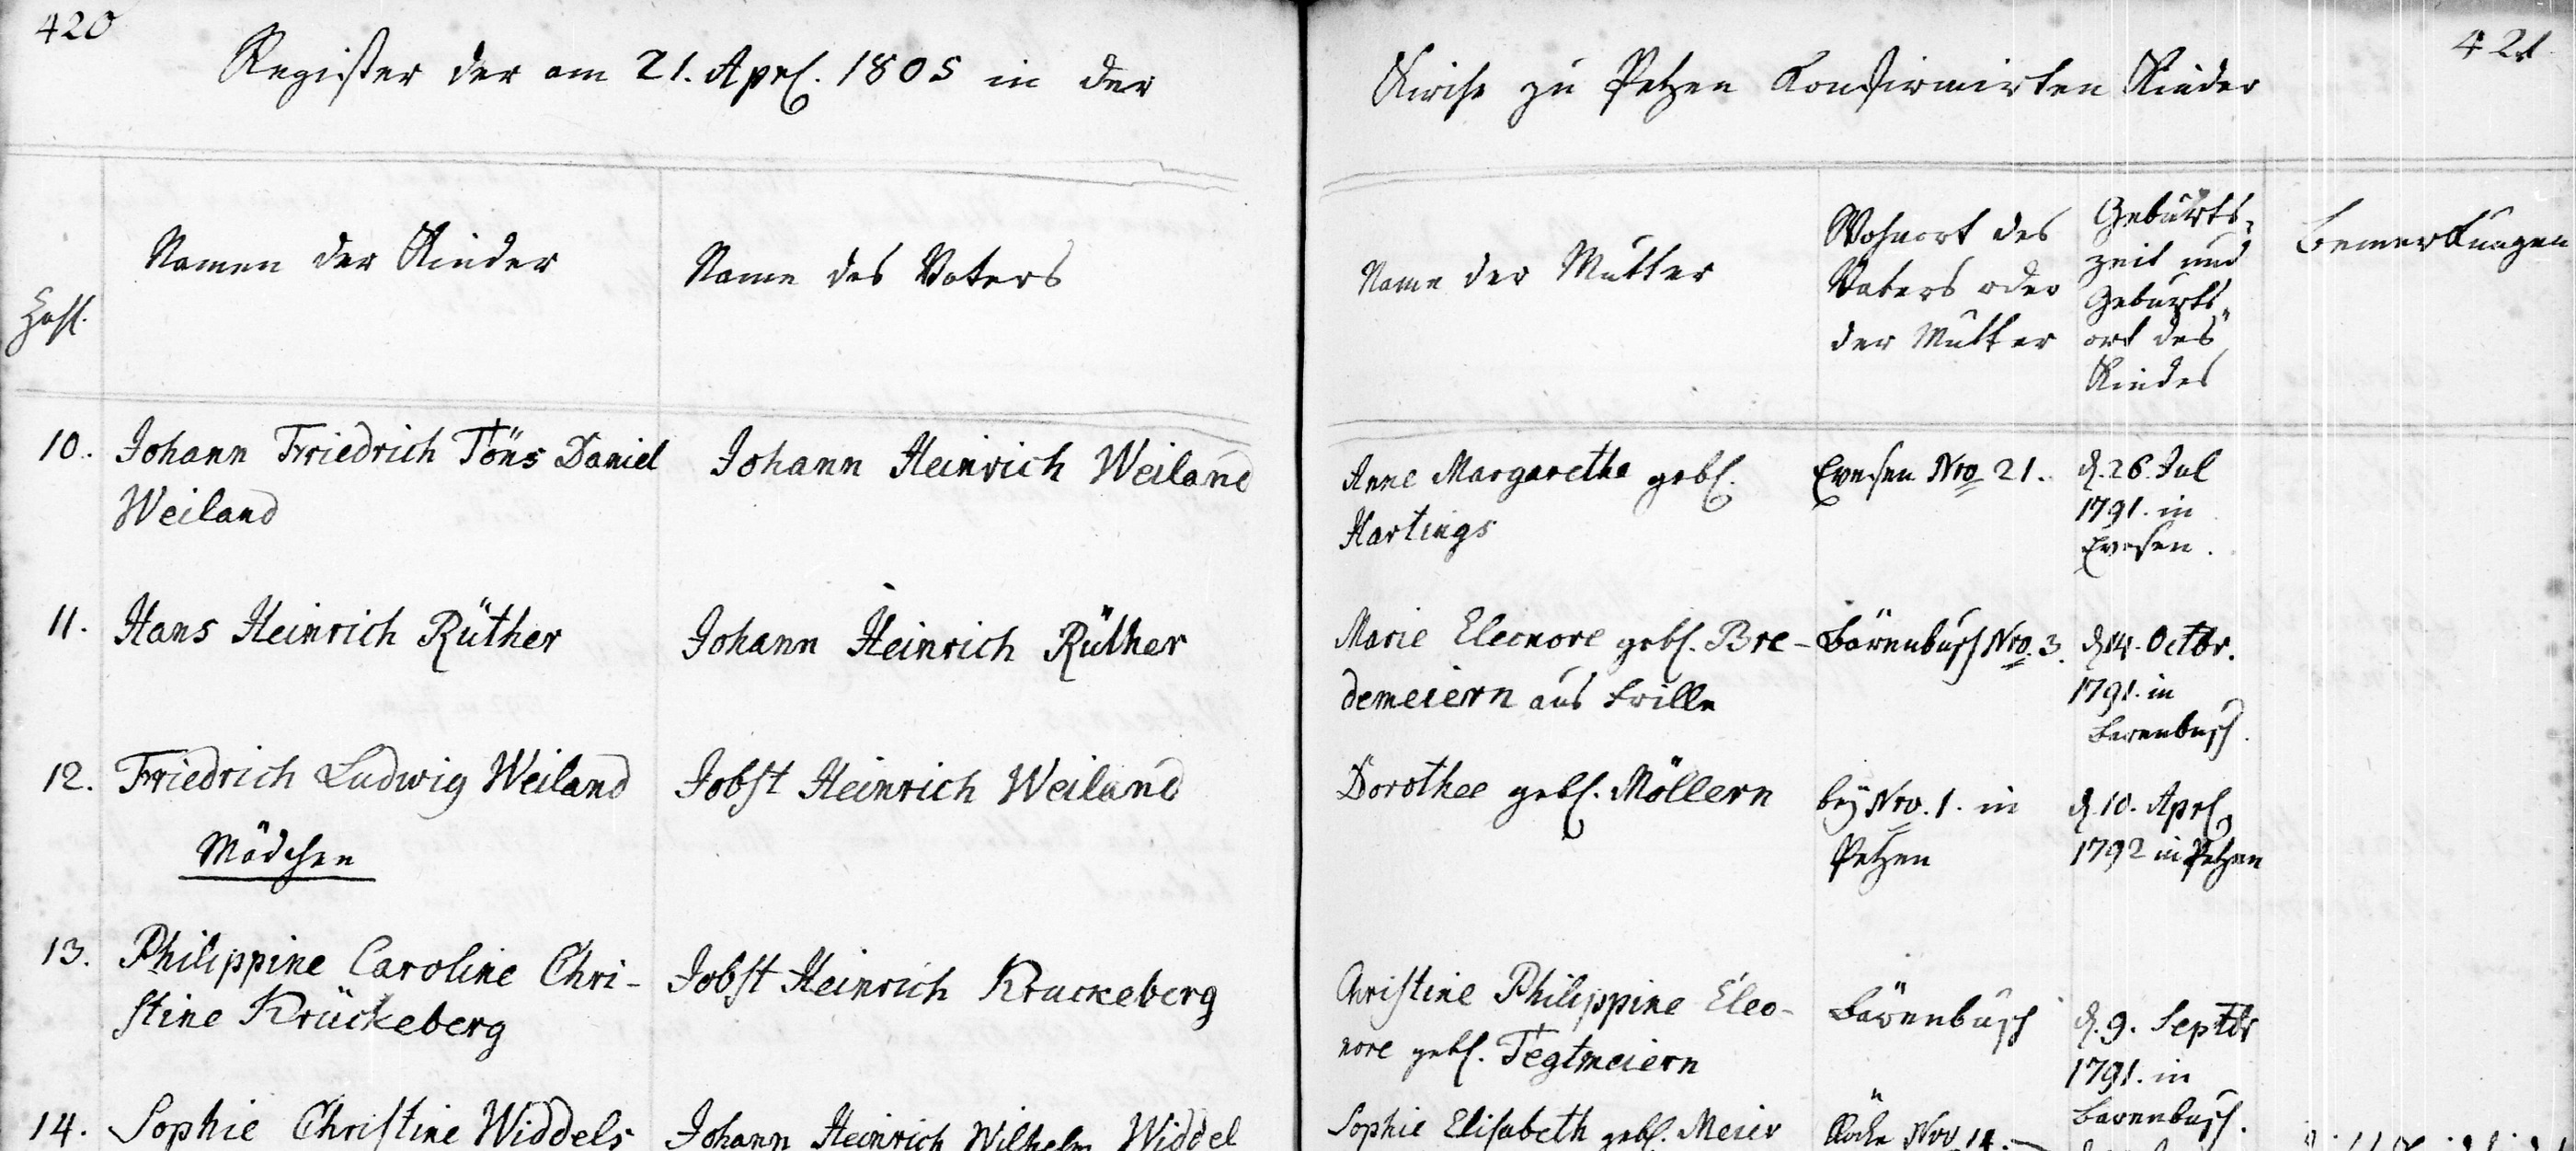 420
Register der am 21. Aprl. 1805 in der
Kirche zu Petzen Konfirmirten Kinder
421
Zahl.
Namen der Kinder
Name des Vaters
Name der Mutter
Wohnort des
Vaters oder
der Mutter
Geburts-
zeit und
Geburts-
ort des
Kindes
Bemerkungen
10. Johann Friedrich Töns Daniel
Weiland
Johann Heinrich Weiland
Anne Margarethe gebl.
Hartings
Evesen Nro 21.
d. 26. Jul
1791. in
Evesen.
11. Hans Heinrich Rüther
Johann Heinrich Rüther
Marie Eleonore gebl. Bre-
demeiern aus Frille
Bärenbusch Nro. 3.
d. 14. Octbr.
1791. in
Berenbusch.
12. Friedrich Ludwig Weiland
Jobst Heinrich Weiland
Dorothee gebl. Möllern
bey Nro. 1. in
Petzen
d. 10. Aprl
1792 in Petzen
Mädchen
13. Philippine Caroline Chri-
stine Krückeberg
Jobst Heinrich Kruckeberg
Christine Philippine Eleo-
nore gebl. Tegtmeiern
Bärenbusch
d. 9. Septbr
1791. in
Berenbusch.
14. Sophie Christine Widdels
Johann Heinrich Wilhelm Widdel
Sophie Elisabeth gebl. Meier
Röcke Nro 14.